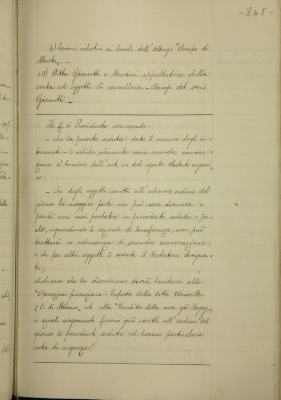 - 845 -
b) lavori relativi ai locali dell'Albergo "Campo di
Marte" -
10) Ditta Giannotti e Mencini appaltatrice della
carta ed oggetti di cancelleria - Recesso del socio
Giannotti -
Il ff. di Presidente osservando:
- che la presente seduta, dato il numero degli in-
tervenuti - è valida solamente come seconda convoca-
zione ai termini dell'art. 14 del vigente Statuto organi-
co;
- che degli oggetti iscritti all'odierno ordine del
giorno la maggior parte non può essere discussa o
perché non mai portata in precedenti sedute o per-
ché, riguardando le aziende di beneficenza, non può
trattarsi in adunanza di seconda convocazione;
e che per altri oggetti è assente il Relatore designa-
to;
dichiara che la discussione dovrà limitarsi alla
"Operazioni finanziarie - Proposta della Ditta
C. di Milano, ed alla "Vendita della
i quali argomenti furono già iscritti all'ordine del
giorno di precedenti sedute ed hanno particolare
nota di urgenza.